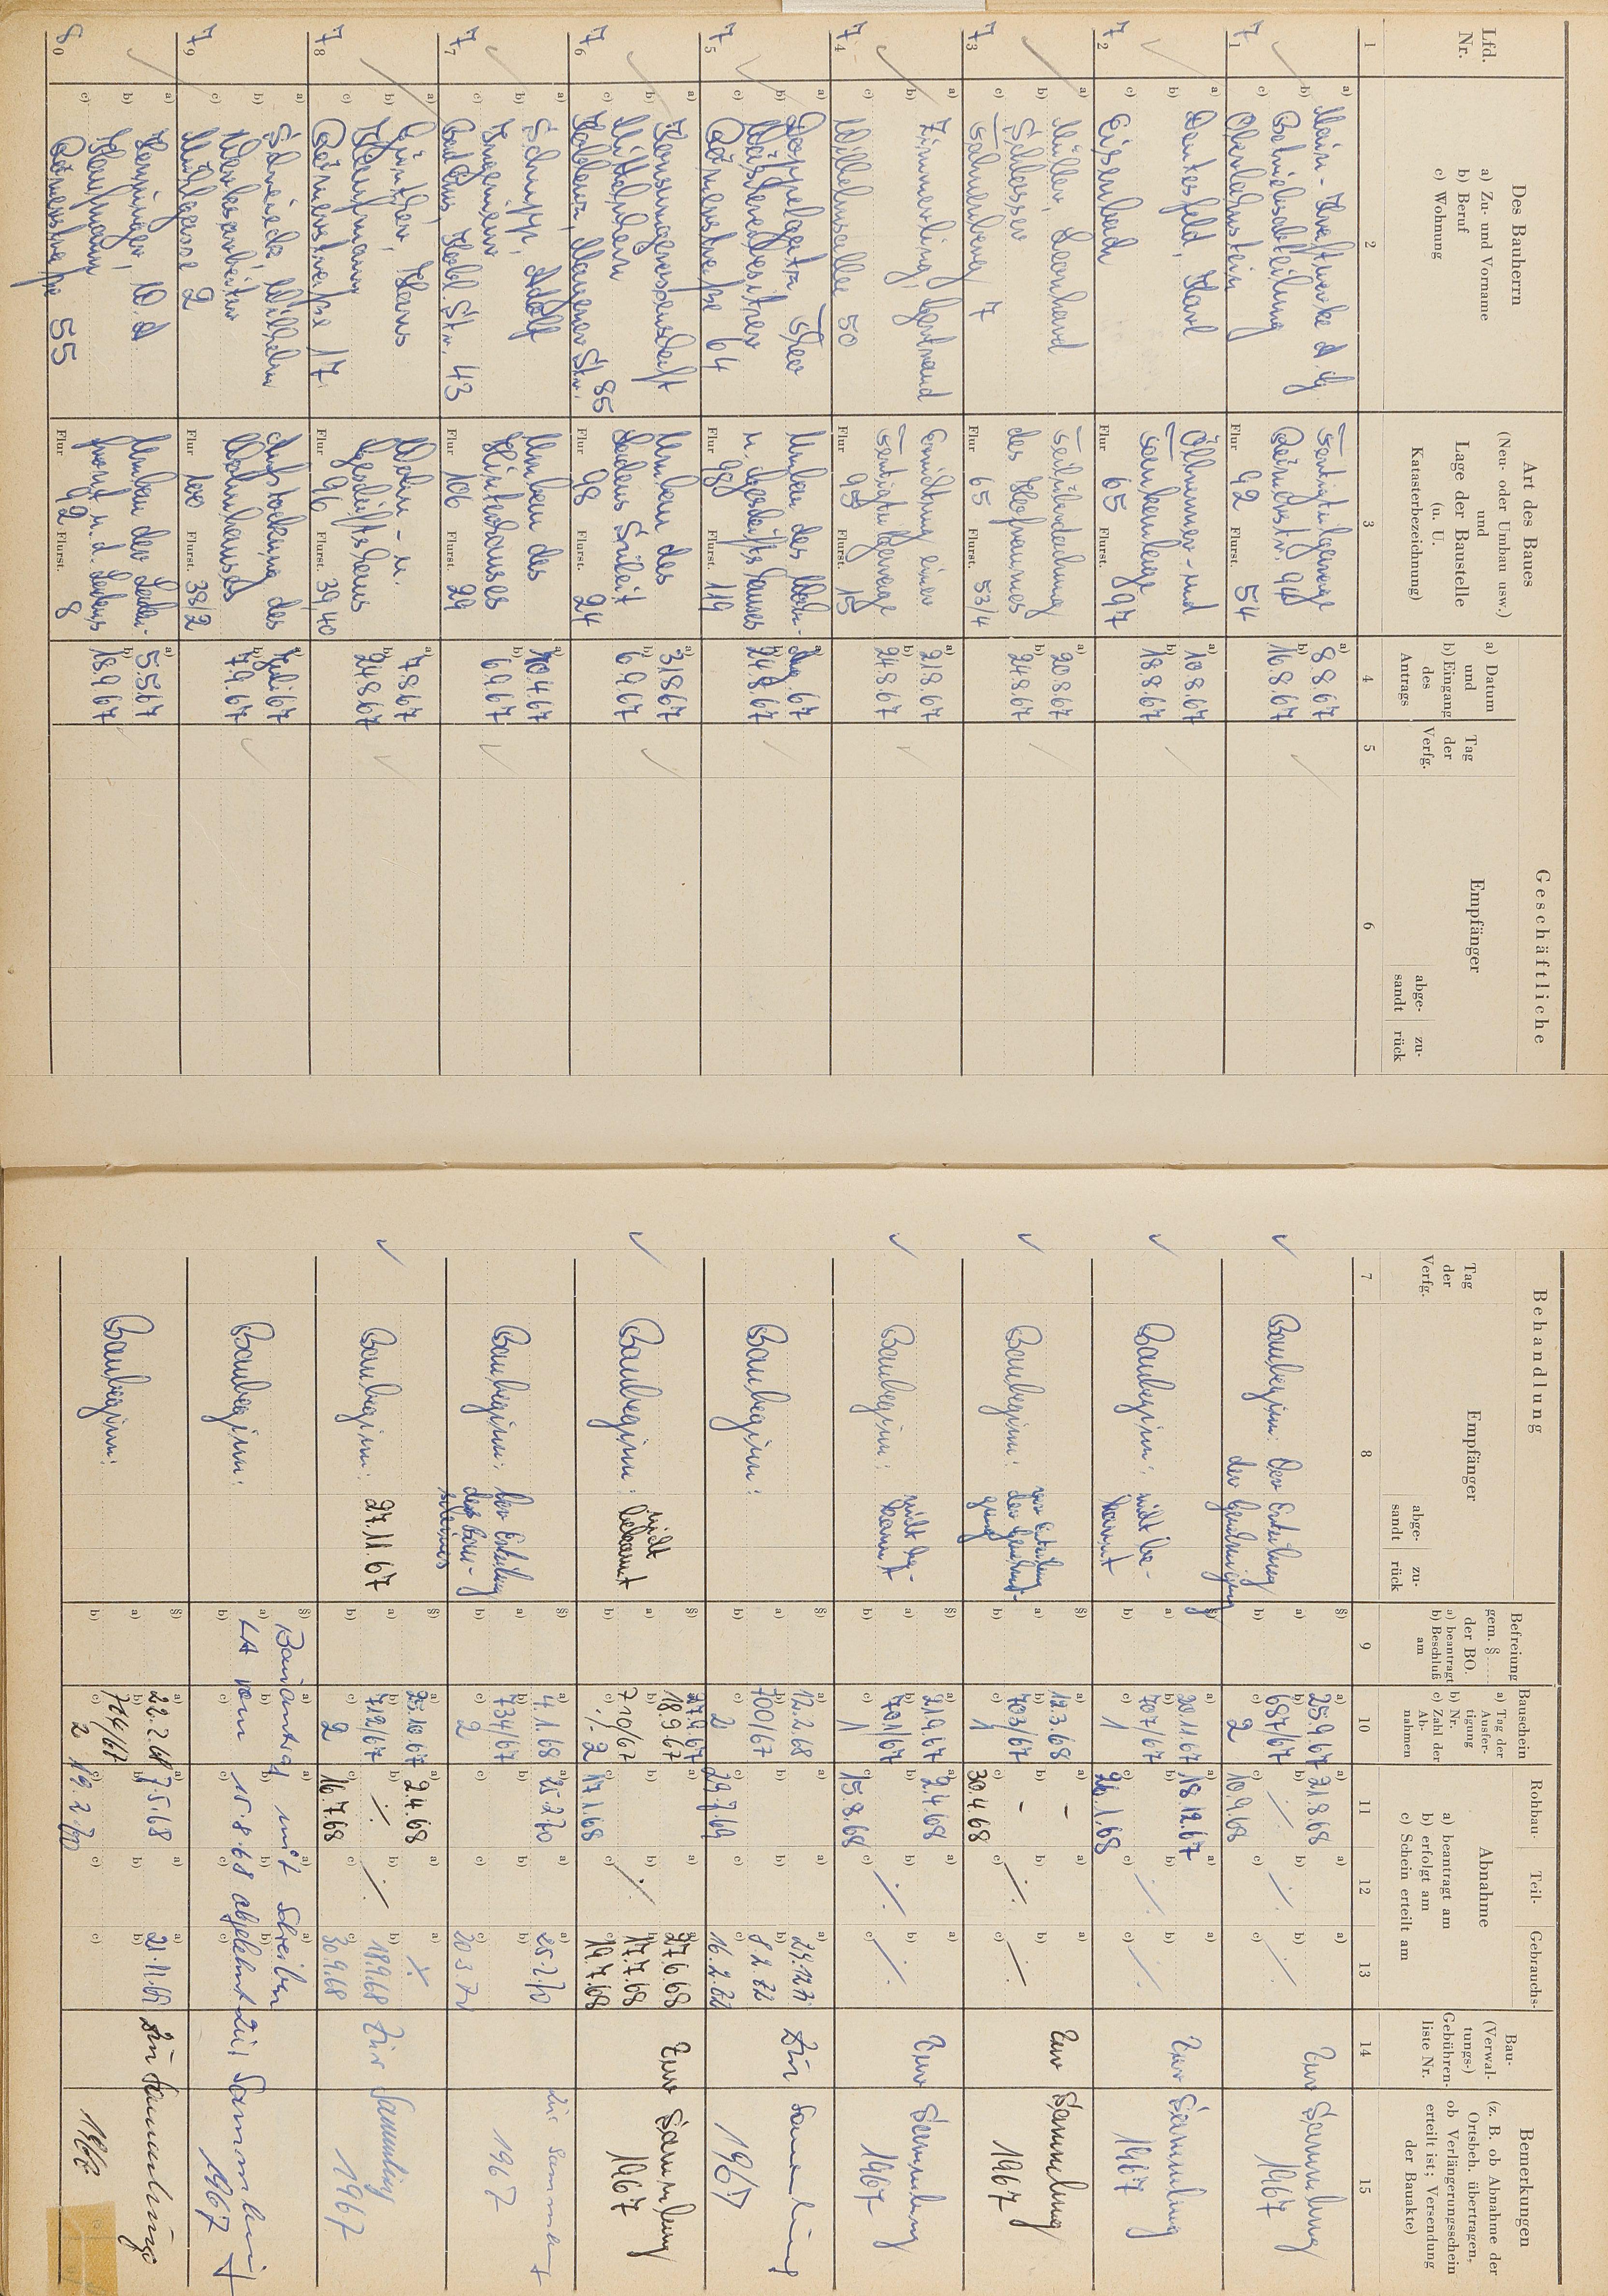 Geschäftliche
Lfd.
Nr.
Des Bauherrn
a) Zu- und Vorname
b) Beruf
c) Wohnung
Art des Baues
(Neu- oder Umbau usw.)
und
Lage der Baustelle
(u. U.
Katasterbezeichnung)
a) Datum
und
b) Eingang
des
Antrags
Tag
der
Verfg.
Empfänger
abge-
sandt
zu-
rück
1 2 3 4 5 6
71
a) Main-Kraftwerke A.G.
b) Betriebsabteilung
c) Oberlahnstein
Fertigteilgarage
Römerstr. 98
Flur 92 Flurst. 54
a) 8.8.67
b) 16.8.67
72
a) Dautesfeld, Karl
b)
c) Eisenbach
Öllammer- und
Tankanlage
Flur 65 Flurst. 97
a) 10.8.67
b) 18.8.67
73
a) Müller, Leonhard
b) Schlosser
c) Tahnenberg 7
Teilüberdachung
des Hofraumes
Flur 65 Flurst. 53/4
a) 20.8.67
b) 24.8.67
74
a) Zimmerling, Gertraud
b)
c) Wilhelmsallee 50
Errichtung einer
Fertigteilgarage
Flur 95 Flurst. 15
a) 21.8.67
b) 24.8.67
75
a) Doppelgatz Theo
b)
c) Römerstraße 64
Umbau des Wohn-
u. Geschäftshauses
Flur 98 Flurst. 119
a) Aug. 67
b) 24.8.67
76
a) Konsumgenossenschaft
b) Mittelrhein
c) Koblenz, Mayener Str. 85
Umbau des
Ladens
Flur 98 Flurst. 24
a) 31.8.67
b) 6.9.67
77
a) Schupp, Adolf
b) Ingenieur
c) Bad Ems, Kobl. Str. 43
Umbau des
Hinterhauses
Flur 106 Flurst. 29
a) 10.4.67
b) 6.9.67
78
a) Günther, Hans
b) Kaufmann
c) Römerstraße 17
Wohn- u.
Geschäftshaus
Flur 96 Flurst. 39, 40
a) 7.8.67
b) 24.8.67
79
a) Schneick, Wilhelm
b) Werksarbeiter
c) Mühlgasse 2
Aufstockung des
Wohnhauses
Flur 100 Flurst. 38/2
a) Juli 67
b) 7.9.67
80
a) Henninger, W. A.
b) Kaufmann
c) Römerstraße 55
Umbau der Laden-
front u. d. Ladens
Flur 92 Flurst. 8
a) 5.5.67
b) 18.9.67
Behandlung
Tag
der
Verfg.
Empfänger
abge-
sandt
zu-
rück
Befreiung
gem. §
der BO.
a) beantragt
b) Beschluß
am
Bauschein
a) Tag der
Ausfer-
tigung
b) Nr.
c) Zahl der
Ab-
nahmen
Rohbau-
Teil-
Gebrauchs-
Abnahme
a) beantragt am
b) erfolgt am
c) Schein erteilt am
Bau-
(Verwal-
tungs-)
Gebühren-
liste Nr.
Bemerkungen
(z. B. ob Abnahme der
Ortsbeh. übertragen,
ob Verlängerungsschein
erteilt ist; Versendung
der Bauakte)
7 8 9 10 11 12 13 14 15
Baubeginn: vor Erteilung
der Genehmigung
a) 25.9.67
b) 687/67
c) 2
a) 21.8.68
b) ./.
c) 10.9.68
./.
./.
Zur Sammlung
1967
Baubeginn: nicht be-
kannt
a) 20.11.67
b) 707/67
c) 1
a) 18.12.67
c) 26.1.68
./.
./.
Zur Sammlung
1967
Baubeginn: vor Erteilung
der Genehmi-
gung
a) 12.3.68
b) 703/67
c) 1
-
-
c) 30.4.68
./.
./.
Zur Sammlung
1967
Baubeginn: nicht be-
kannt
a) 21.9.67
b) 701/67
c) 1
a) 2.4.68
c) 15.8.68
./.
./.
Zur Sammlung
1967
Baubeginn:
a) 12.2.68
b) 700/67
c) 2
c) 29.7.69
a) 29.12.71
b) 8.2.72
c) 16.2.72
Zur Sammlung
1967
Baubeginn: nicht
bekannt
27.9.67
a) 18.9.67
b) 710/67
c) ./. 2
c) 17.1.68
./.
a) 27.6.68
b) 17.7.68
c) 19.7.68
Zur Sammlung
1967
Baubeginn: vor Erteilung
des Bau-
scheines
a) 4.1.68
b) 734/67
c) 2
a) 25.2.70
a) 25.2.70
Zur Sammlung
1967
Baubeginn: 27.11.67
a) 25.10.67
b) 712/67
c) 2
a) 2.4.68
b) ./.
c) 16.7.68
./.
b) 18.9.68
c) 30.9.68
Zur Sammlung
1967
Baubeginn:
Bauantrag mit Schreiben
LA vom 15.8.68 abgelehnt
Zur Sammlung
1967
Baubeginn:
b) 764/67
c) 2
a) 7.5.68
c) 19.2.70
a) 21.11.69
Zur Sammlung